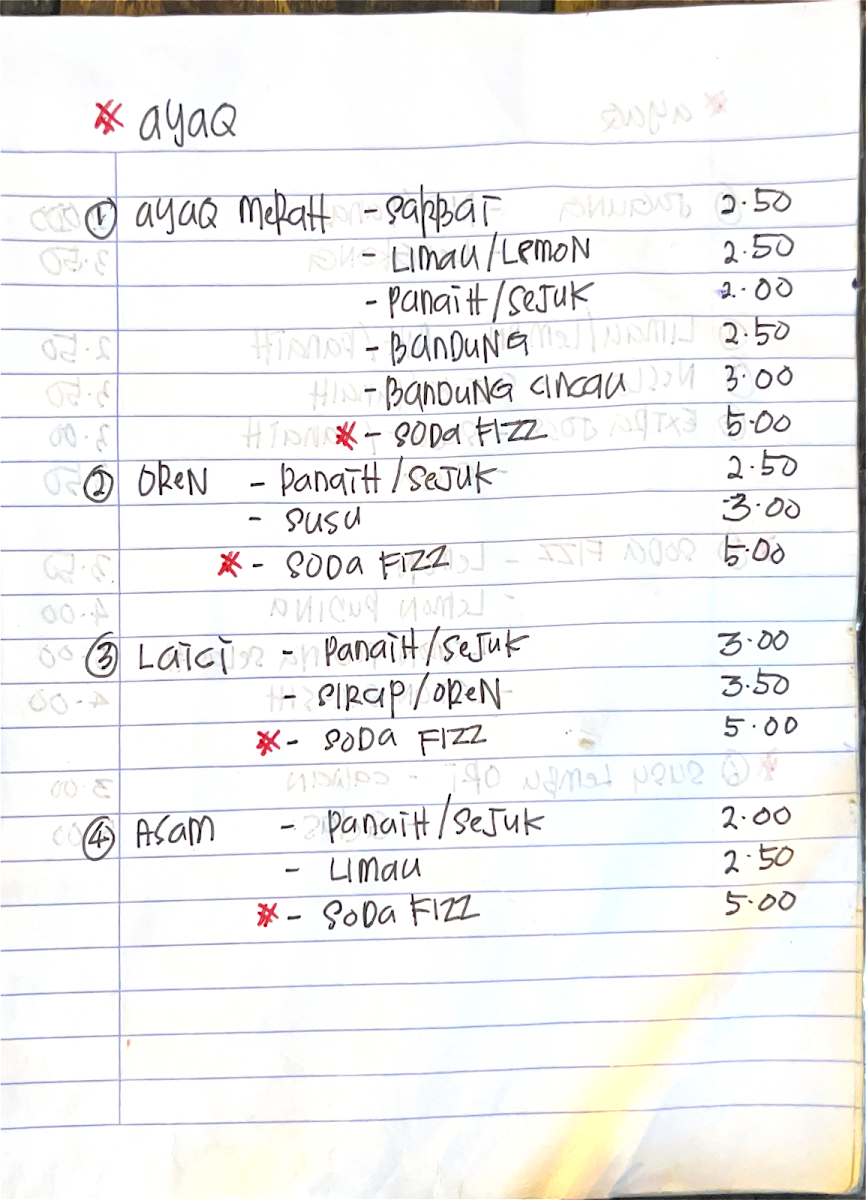 * ayaQ
① ayaQ MeRaH - SaRBaT 2.50
- LIMau/LEMON 2.50
- PaNaiH/SeJuK 2.00
- BaNDuNG 2.50
- BaNDuNG CINCau 3.00
* - SODa FIZZ 5.00
② OReN - PaNaiH/SeJuK 2.50
- SuSu 3.00
* - SODa FIZZ 5.00
③ LaiCi - PaNaiH/SeJuK 3.00
- SIRaP/OReN 3.50
* - SODa FIZZ 5.00
④ ASaM - PaNaiH/SeJuK 2.00
- LIMau 2.50
* - SODa FIZZ 5.00